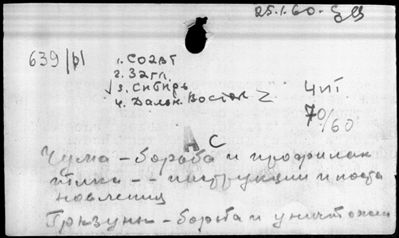 25.1.60.
639/pl
1. СОАВТ
2. Загл.
3. Сибирь
4. Дальн. Восток 2
Чит.
70/60
А С
Чума - борьба и профилак
тика - - инструкции и поста
новления
Грызуны - борьба и уничтожен